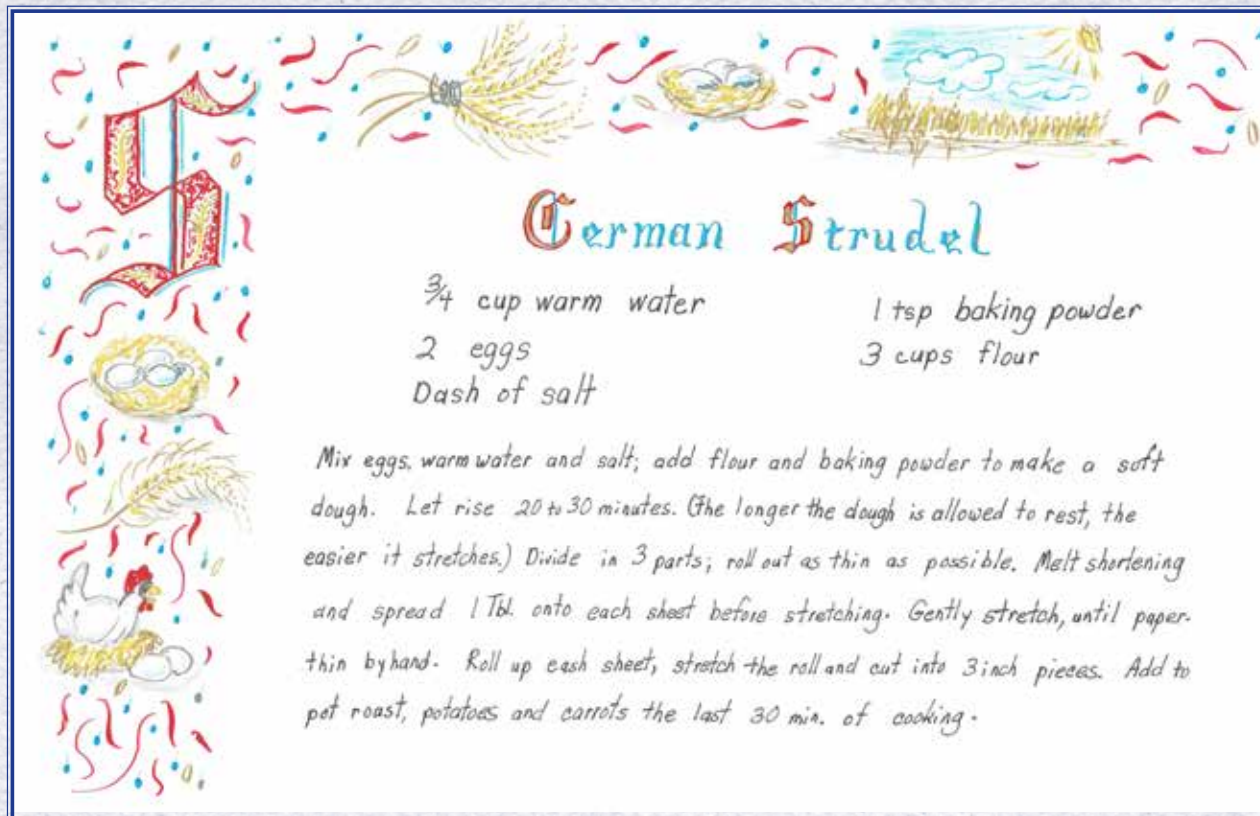 S
German Strudel
¾ cup warm water
2 eggs
Dash of salt
1 tsp baking powder
3 cups flour
Mix eggs, warm water and salt; add flour and baking powder to make a soft
dough. Let rise 20 to 30 minutes. (The longer the dough is allowed to rest, the
easier it stretches.) Divide in 3 parts; roll out as thin as possible. Melt shortening
and spread 1 Tbl. onto each sheet before stretching. Gently stretch, until paper-
thin by hand. Roll up each sheet, stretch the roll and cut into 3 inch pieces. Add to
pot roast, potatoes and carrots the last 30 min. of cooking.